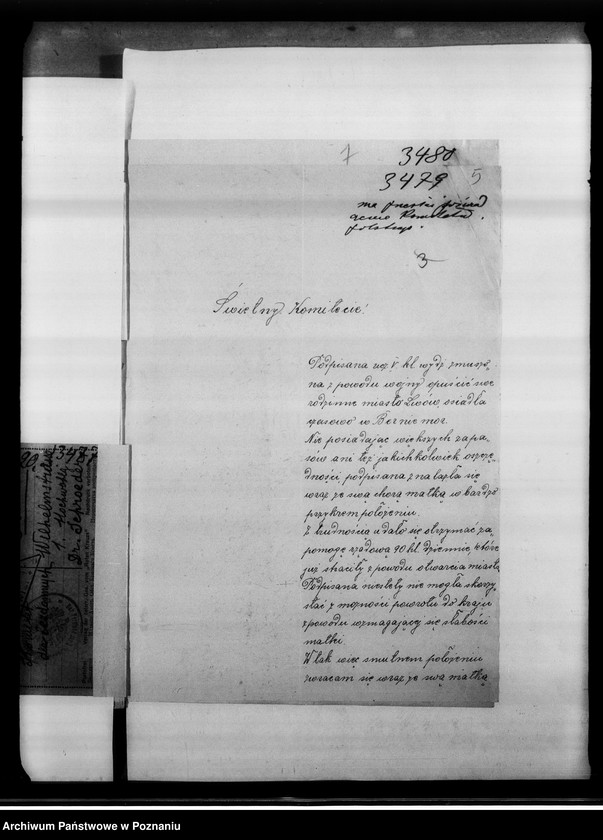 7
3480
3479 5
na
3
Świetny Komitecie!
Podpisana ucz. V kl wydz zmuszo-
na z powodu wojny opuścić swe
rodzinne miasto Lwów, osiadła
czasowo w Bernie mor.
Nie posiadając większych zapa-
sów ani też jakichkolwiek oszczę-
dności, podpisana znalazła się
wraz ze swą chorą matką w bardzo
przykrem położeniu.
Z trudnością udało się otrzymać za-
pomogę rządową 90 hl. dziennie, które
już straciły z powodu otwarcia miasta
Podpisana niestety nie mogła skorzy-
stać z możności powrotu do kraju
z powodu wzmagającej się słabości
matki.
W tak więc smutnem położeniu
zwracam się wraz ze swą matką
3479
Wilhelm
Dr.
Archiwum Państwowe w Poznaniu